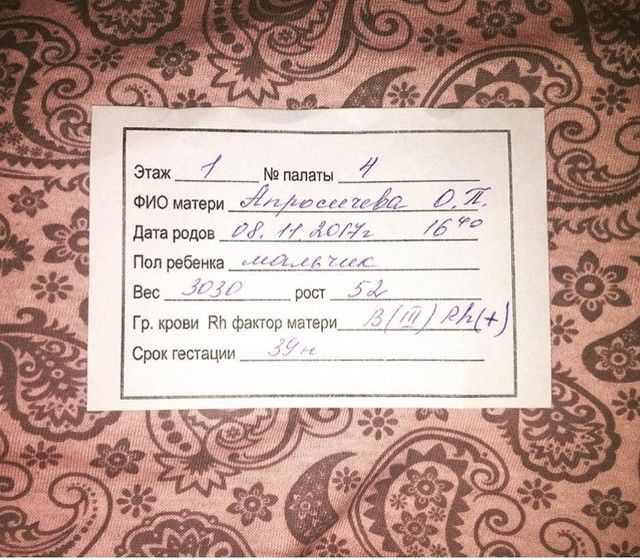 Этаж 1 № палаты 4
ФИО матери Апросичева О.П.
Дата родов 08.11.2017г 16⁴⁰
Пол ребенка мальчик
Вес 3030 рост 52
Гр. крови Rh фактор матери B(III) Rh(+)
Срок гестации 39н